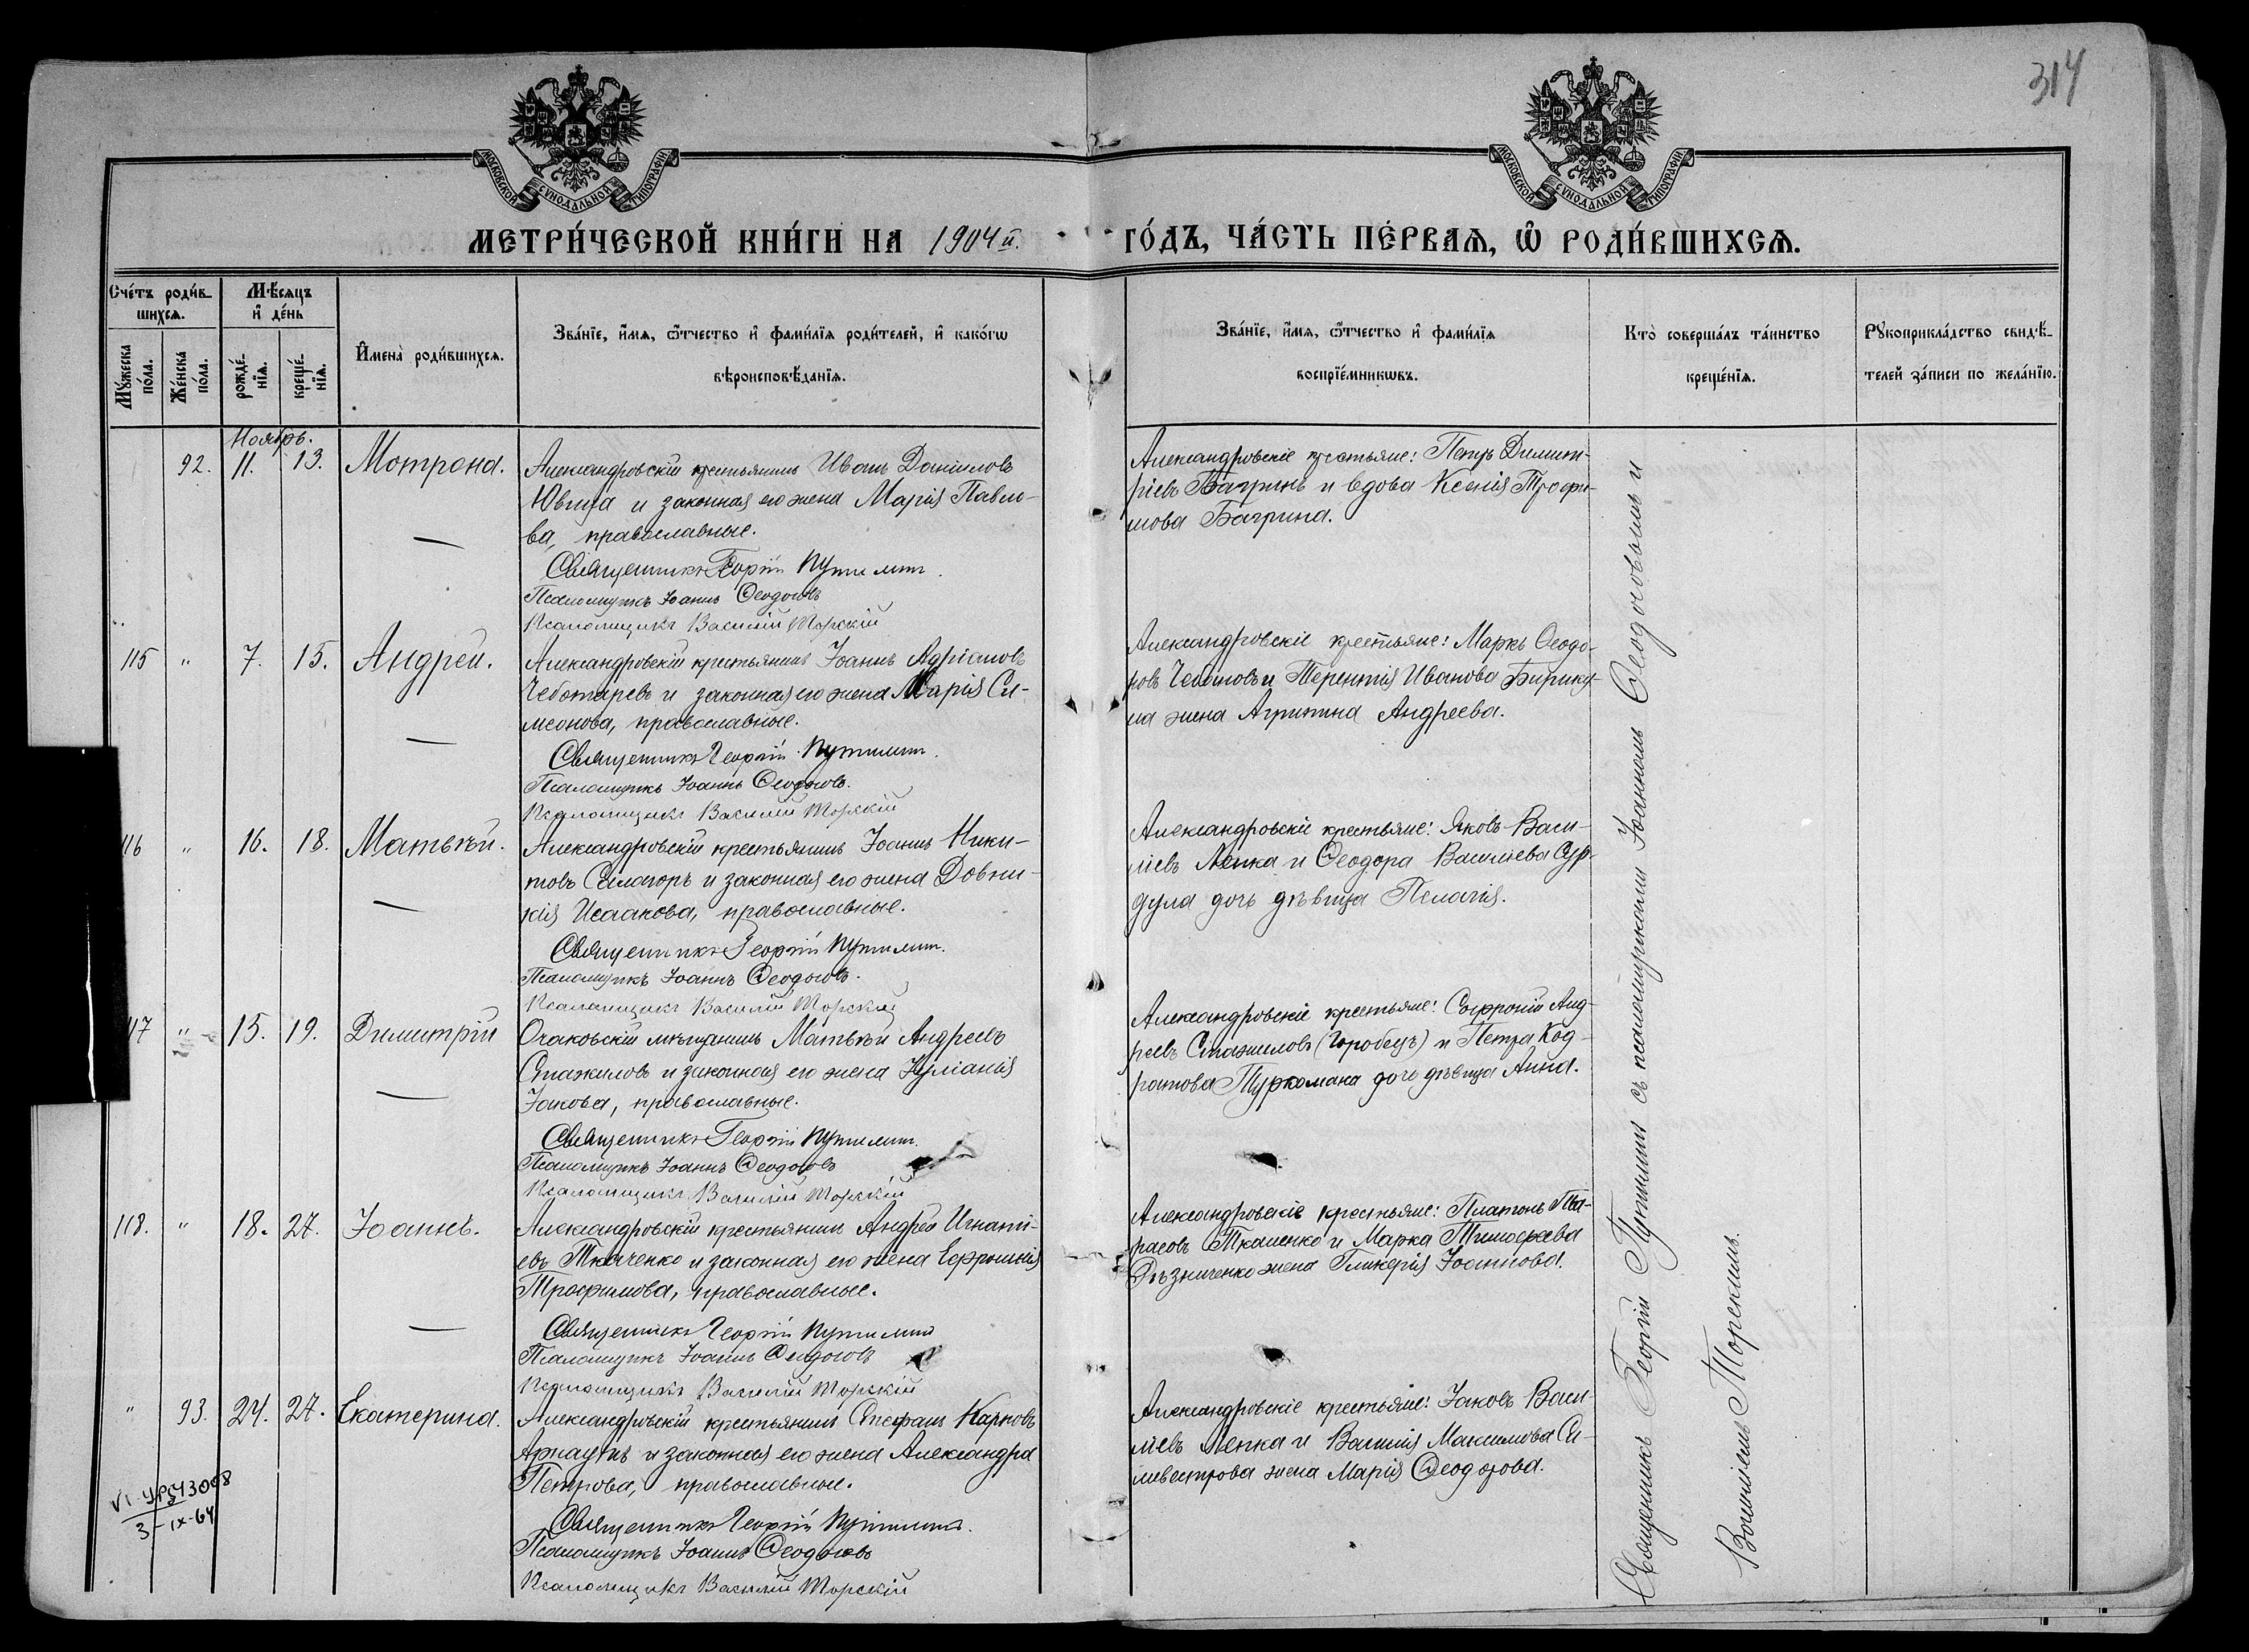 314
МОСКОВСКОЙ СѴНОДАЛЬНОЙ ТИПОГРАФІИ
МОСКОВСКОЙ СѴНОДАЛЬНОЙ ТИПОГРАФІИ
МЕТРИ́ЧЕСКОЙ КНИ́ГИ НА 1904 й. ГО́ДЪ, ЧА́СТЬ ПЕ́РВАѦ, Ѡ҆ РОДИ́ВШИХСѦ.
Сче́тъ роди́в-
шихсѧ.
Мꙋ́жеска
по́ла.
Же́нска
по́ла.
Мѣ́сѧцъ
и҆ де́нь
рожде́-
нїѧ.
креще́-
нїѧ.
И҆мена̀ роди́вшихсѧ.
Зва́нїе, и҆́мѧ, ѻ҆́тчество и҆ фами́лїѧ роди́телей, и҆ како́гѡ
вѣроисповѣ́данїѧ.
Зва́нїе, и҆́мѧ, ѻ҆́тчество и҆ фами́лїѧ
воспрїе́мникѡвъ.
Кто̀ соверша́лъ та́инство
креще́нїѧ.
Рꙋкоприкла́дство свидѣ́-
телей за́писи по жела́нїю.
Ноябрь.
92. 11. 13. Мотрона.
Александровскій крестьянинъ Иванъ Даніиловъ
Ювица и законная его жена Марія Павло-
ва, православные.
Священникъ Георгій Путилин
Псаломщикъ Іоаннъ Ѳеодосовъ
Псаломщикъ Василій Торскій
Александровскіе крестьяне: Петръ Димит-
ріевъ Багринъ и вдова Ксенія Трофи-
мова Багрина.
115 " 7. 15. Андрей.
Александровскій крестьянинъ Іоаннъ Адріановъ
Чеботаревъ и законная его жена Марія Си-
меонова, православные.
Священникъ Георгій Путилин
Псаломщикъ Іоаннъ Ѳеодосовъ.
Псаломщикъ Василій Торскій
Александровскіе крестьяне: Маркъ Ѳеодо-
ровъ и Терентія Иванова Бирику-
ла жена Агрипина Андреева.
116 " 16. 18. Матвѣй.
Александровскій крестьянинъ Іоаннъ Ники-
товъ и законная его жена Довни-
кія Исаакова, православные.
Священникъ Георгій Путилин.
Псаломщикъ Іоаннъ Ѳеодосовъ.
Псаломщикъ Василій Торскій
Александровскіе крестьяне: Яковъ Васи-
ліевъ Лепка и Ѳеодора Василіева Сур-
дула дочь дѣвица Пелагія.
117 " 15. 19. Димитрій
Очаковскій мѣщанинъ Матвѣй Андреевъ
Стажиловъ и законная его жена Іуліанія
Іакова, православные.
Священникъ Георгій Путилин.
Псаломщикъ Іоаннъ Ѳеодосовъ
Псаломщикъ Василій Торскій
Александровскіе крестьяне: Софроній Анд-
реевъ Стажиловъ (Горобецъ) и Петра Код-
ратова Туркомана дочь дѣвица Анна.
118. " 18. 27. Іоаннъ.
Александровскій крестьянинъ Андрей Игнаті-
евъ Ткаченко и законная его жена Ефросинія
Трофимова, православные.
Священникъ Георгій Путилин
Псаломщикъ Іоаннъ Ѳеодосовъ
Псаломщикъ Василій Торскій
Александровскіе крестьяне: Платонъ Та-
расовъ Ткаченко и Марка Тимоѳеева
Рѣзниченко жена Гликерія Іоаннова.
" 93. 24. 27. Екатерина.
Александровскій крестьянинъ Стефанъ Карповъ
Арнаутъ и законная его жена Александра
Петрова, православные.
Священникъ Георгій Путилин.
Псаломщикъ Іоаннъ Ѳеодосовъ
Псаломщикъ Василій Торскій
Александровскіе крестьяне: Іаковъ Васи-
ліевъ Лепка и Василія Максимова Си-
ливестрова жена Марія Ѳеодорова.
3-IX-64
Священникъ Георгій Путилинъ съ псаломщиками Іоанномъ Ѳеодосовымъ и
Василіемъ Торскимъ.